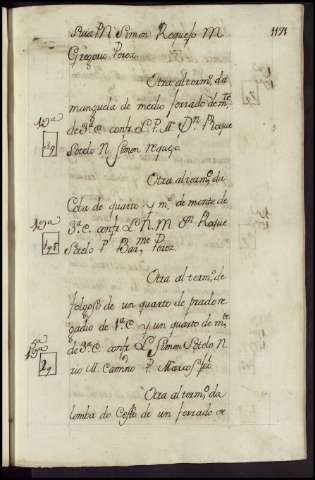 Pres. N. Simon Requejo M.
1121
Gregorio Perez
Otra al term.º da
manguela de medio ferrado de m.te
de 3.ª C. confr. L. P. M. D.n Roque
Sotelo N. Simon reqejo
Otra al term.º da
Cola de quarto y m.º de monte de
3.ª C. confr. L. N. M. D.n Roque
Sotelo P. Bar.me Perez
Otra al term.º de
folgoso de un quarto de prado re
gadio de 1.ª C. y un quarto de m.te
de 3.ª C. confr. L. Simon Sotelo N.
rio M. Camino P. Marcos
Otra al term.º da
lomba do Costo de un ferrado de